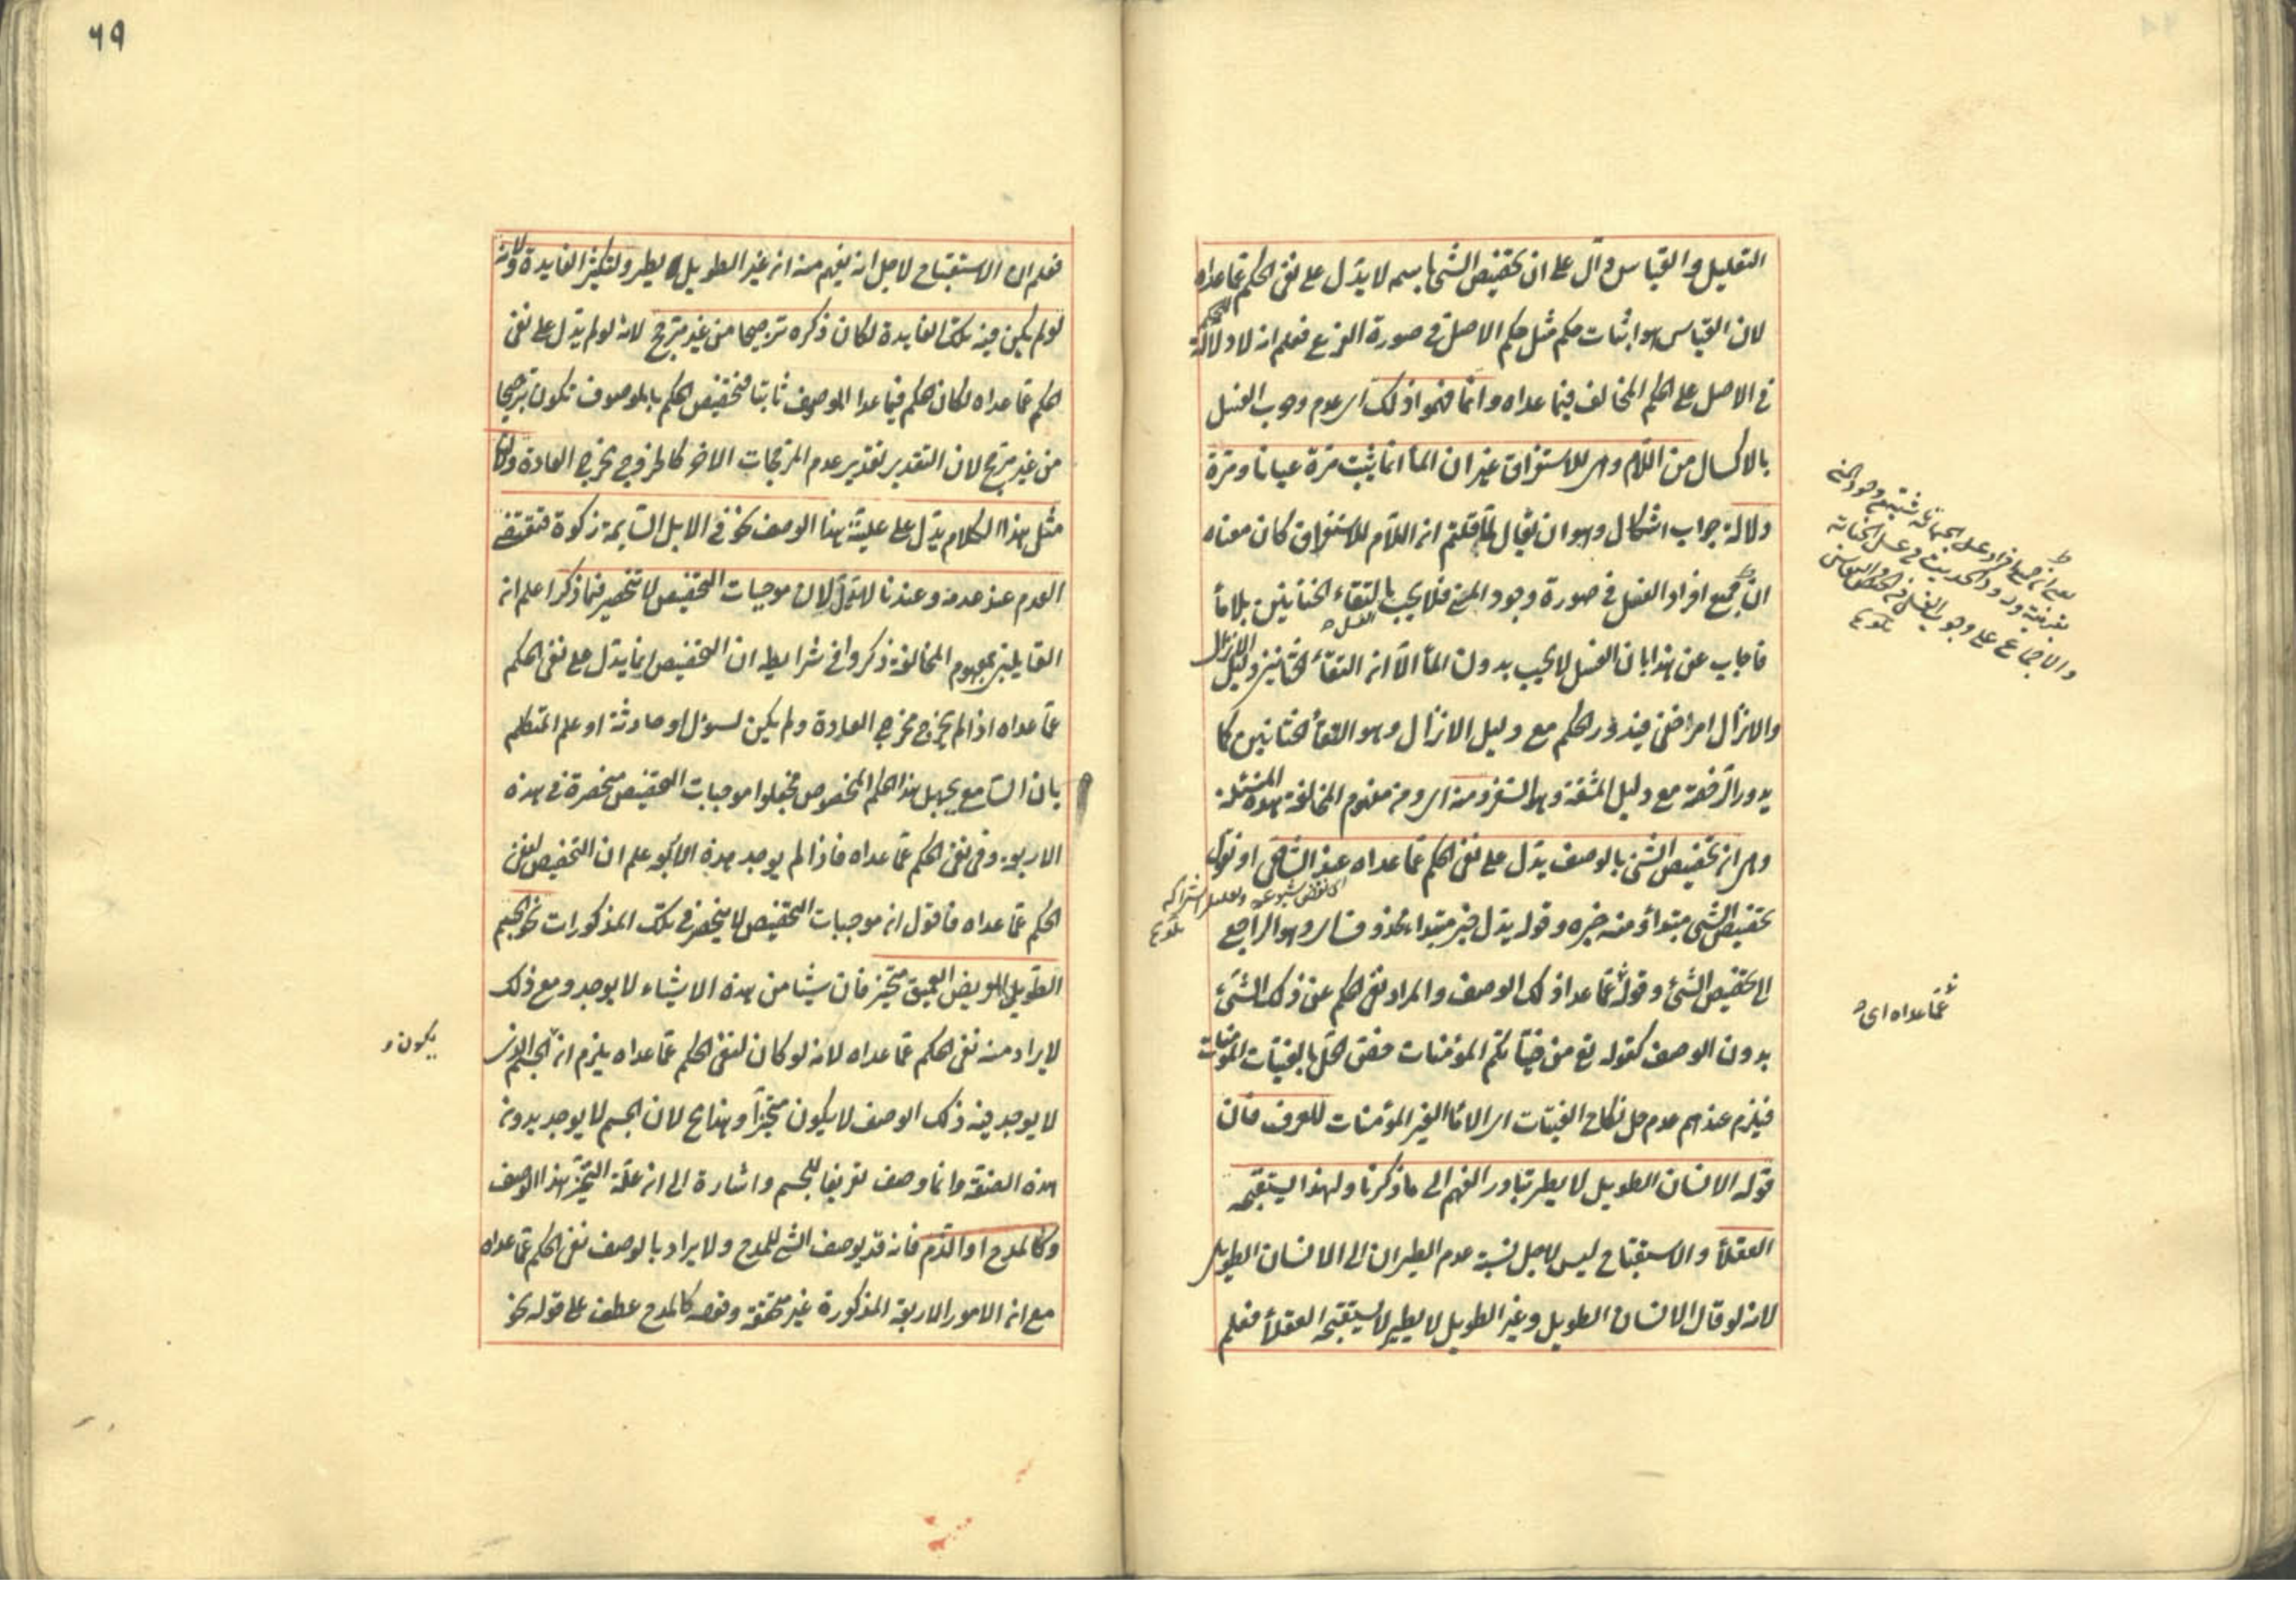 التعليل والقياس دال على ان تخصيص الشئ باسمه لا يدل على نفى الحكم عما عداه
لان القياس هو اثبات حكم مثل حكم الاصل فى صورة الفرع فعلم انه لا دلالة للحكم
فى الاصل على الحكم المخالف فيما عداه وانما فهموا ذلك اى عدم وجوب الغسل
بالاكسال من اللام وهى للاستغراق غير ان الماء انما يثبت مرة عيانا ومرة
دلالة جواب اشكال وهو ان يقال لما قلتم ان اللام للاستغراق كان معناه
ان جميع افراد الغسل فى صورة وجود المنى فلا يجب بالتقاء الختانين بلا ماء
الغسل
فاجاب عن هذا بان الغسل لا يجب بدون الماء الا ان التقاء الختانين دليل الانزال
والانزال امر خفى فيدور الحكم مع دليل الانزال وهو التقاء الختانين كما
يدور الرخصة مع دليل المشقة وهو السفر ومنه اى ومن مفهوم المخالفة هذه المسئلة
وهى ان تخصيص الشئ بالوصف يدل على نفى الحكم عما عداه عند الشافعى او نقول
اى نقص شيوعه وتقليل اشتراكه
تلويح
تخصيص الشئ مبتدأ ومنه خبره وقوله يدل خبر مبتدأ محذوف اى وهو الراجع
الى تخصيص الشئ وقوله عما عدا ذلك الوصف والمراد نفى الحكم عن ذلك الشئ
بدون الوصف كقوله تع من فتياتكم المؤمنات خص الحل بالفتيات المؤمنات
فيلزم عندهم عدم حل نكاح الفتيات اى الاماء الغير المؤمنات للعرف فان
قوله الانسان الطويل لا يطير تبادر الفهم الى ما ذكرنا ولهذا يستقبحه
العقلاء والاستقباح ليس لاجل نسبة عدم الطيران الى الانسان الطويل
لانه لو قال الانسان الطويل وغير الطويل لا يطير لا يستقبحه العقلاء فعلم
يعنى ان جميع افراد غسل الجنابة
بقرينة ورود الحديث فى غسل الجنابة
والاجماع على وجوب الغسل فى الحيض والنفاس
تلويح
عما عداه اى
٦٩
فعلم ان الاستقباح لاجل انه يفهم منه ان غير الطويل يطير ولتكثير الفايدة ولانه
لو لم يكن فيه تلك الفايدة لكان ذكره ترجيحا من غير مرجح لانه لو لم يدل على نفى
الحكم عما عداه لكان الحكم فيما عدا الموصوف ثابتا فتخصيص الحكم بالموصوف يكون ترجيحا
من غير مرجح لان التقدير تقدير عدم المرجحات الاخر كالخروج مخرج العادة ولان
مثل هذا الكلام يدل على علية هذا الوصف نحو فى الابل السايمة زكوة فتقتضى
العدم عند عدمه وعندنا لا يدل لان موجبات التخصيص لا تنحصر فيما ذكر اعلم ان
القايلين بمفهوم المخالفة ذكروا فى شرايطه ان التخصيص انما يدل على نفى الحكم
عما عداه اذا لم يخرج مخرج العادة ولم يكن لسؤال او حادثة او علم المتكلم
بان السامع يجهل هذا الحكم المخصوص فجعلوا موجبات التخصيص منحصرة فى هذه
الاربعة وفى نفى الحكم عما عداه فاذا لم يوجد هذه الاربعة علم ان التخصيص لنفى
الحكم عما عداه فاقول ان موجبات التخصيص لا ينحصر فى تلك المذكورات نحو الجسم
الطويل العريض العميق متحيز فان شيئا من هذه الاشياء لا يوجد ومع ذلك
لا يراد منه نفى الحكم عما عداه لانه لو كان لنفى الحكم عما عداه يلزم ان الجسم الذى
لا يوجد فيه ذلك الوصف لا يكون متحيزا وهذا مح لان الجسم لا يوجد بدون
هذه الصفة وانما وصف تعريفا للجسم واشارة الى ان علة التحيز هذا الوصف
وكالمدح او الذم فانه قد يوصف الشئ للمدح ولا يراد بالوصف نفى الحكم عما عداه
مع ان الامور الاربعة المذكورة غير متحققة وقوله كالمدح عطف على قوله نحو
يكون